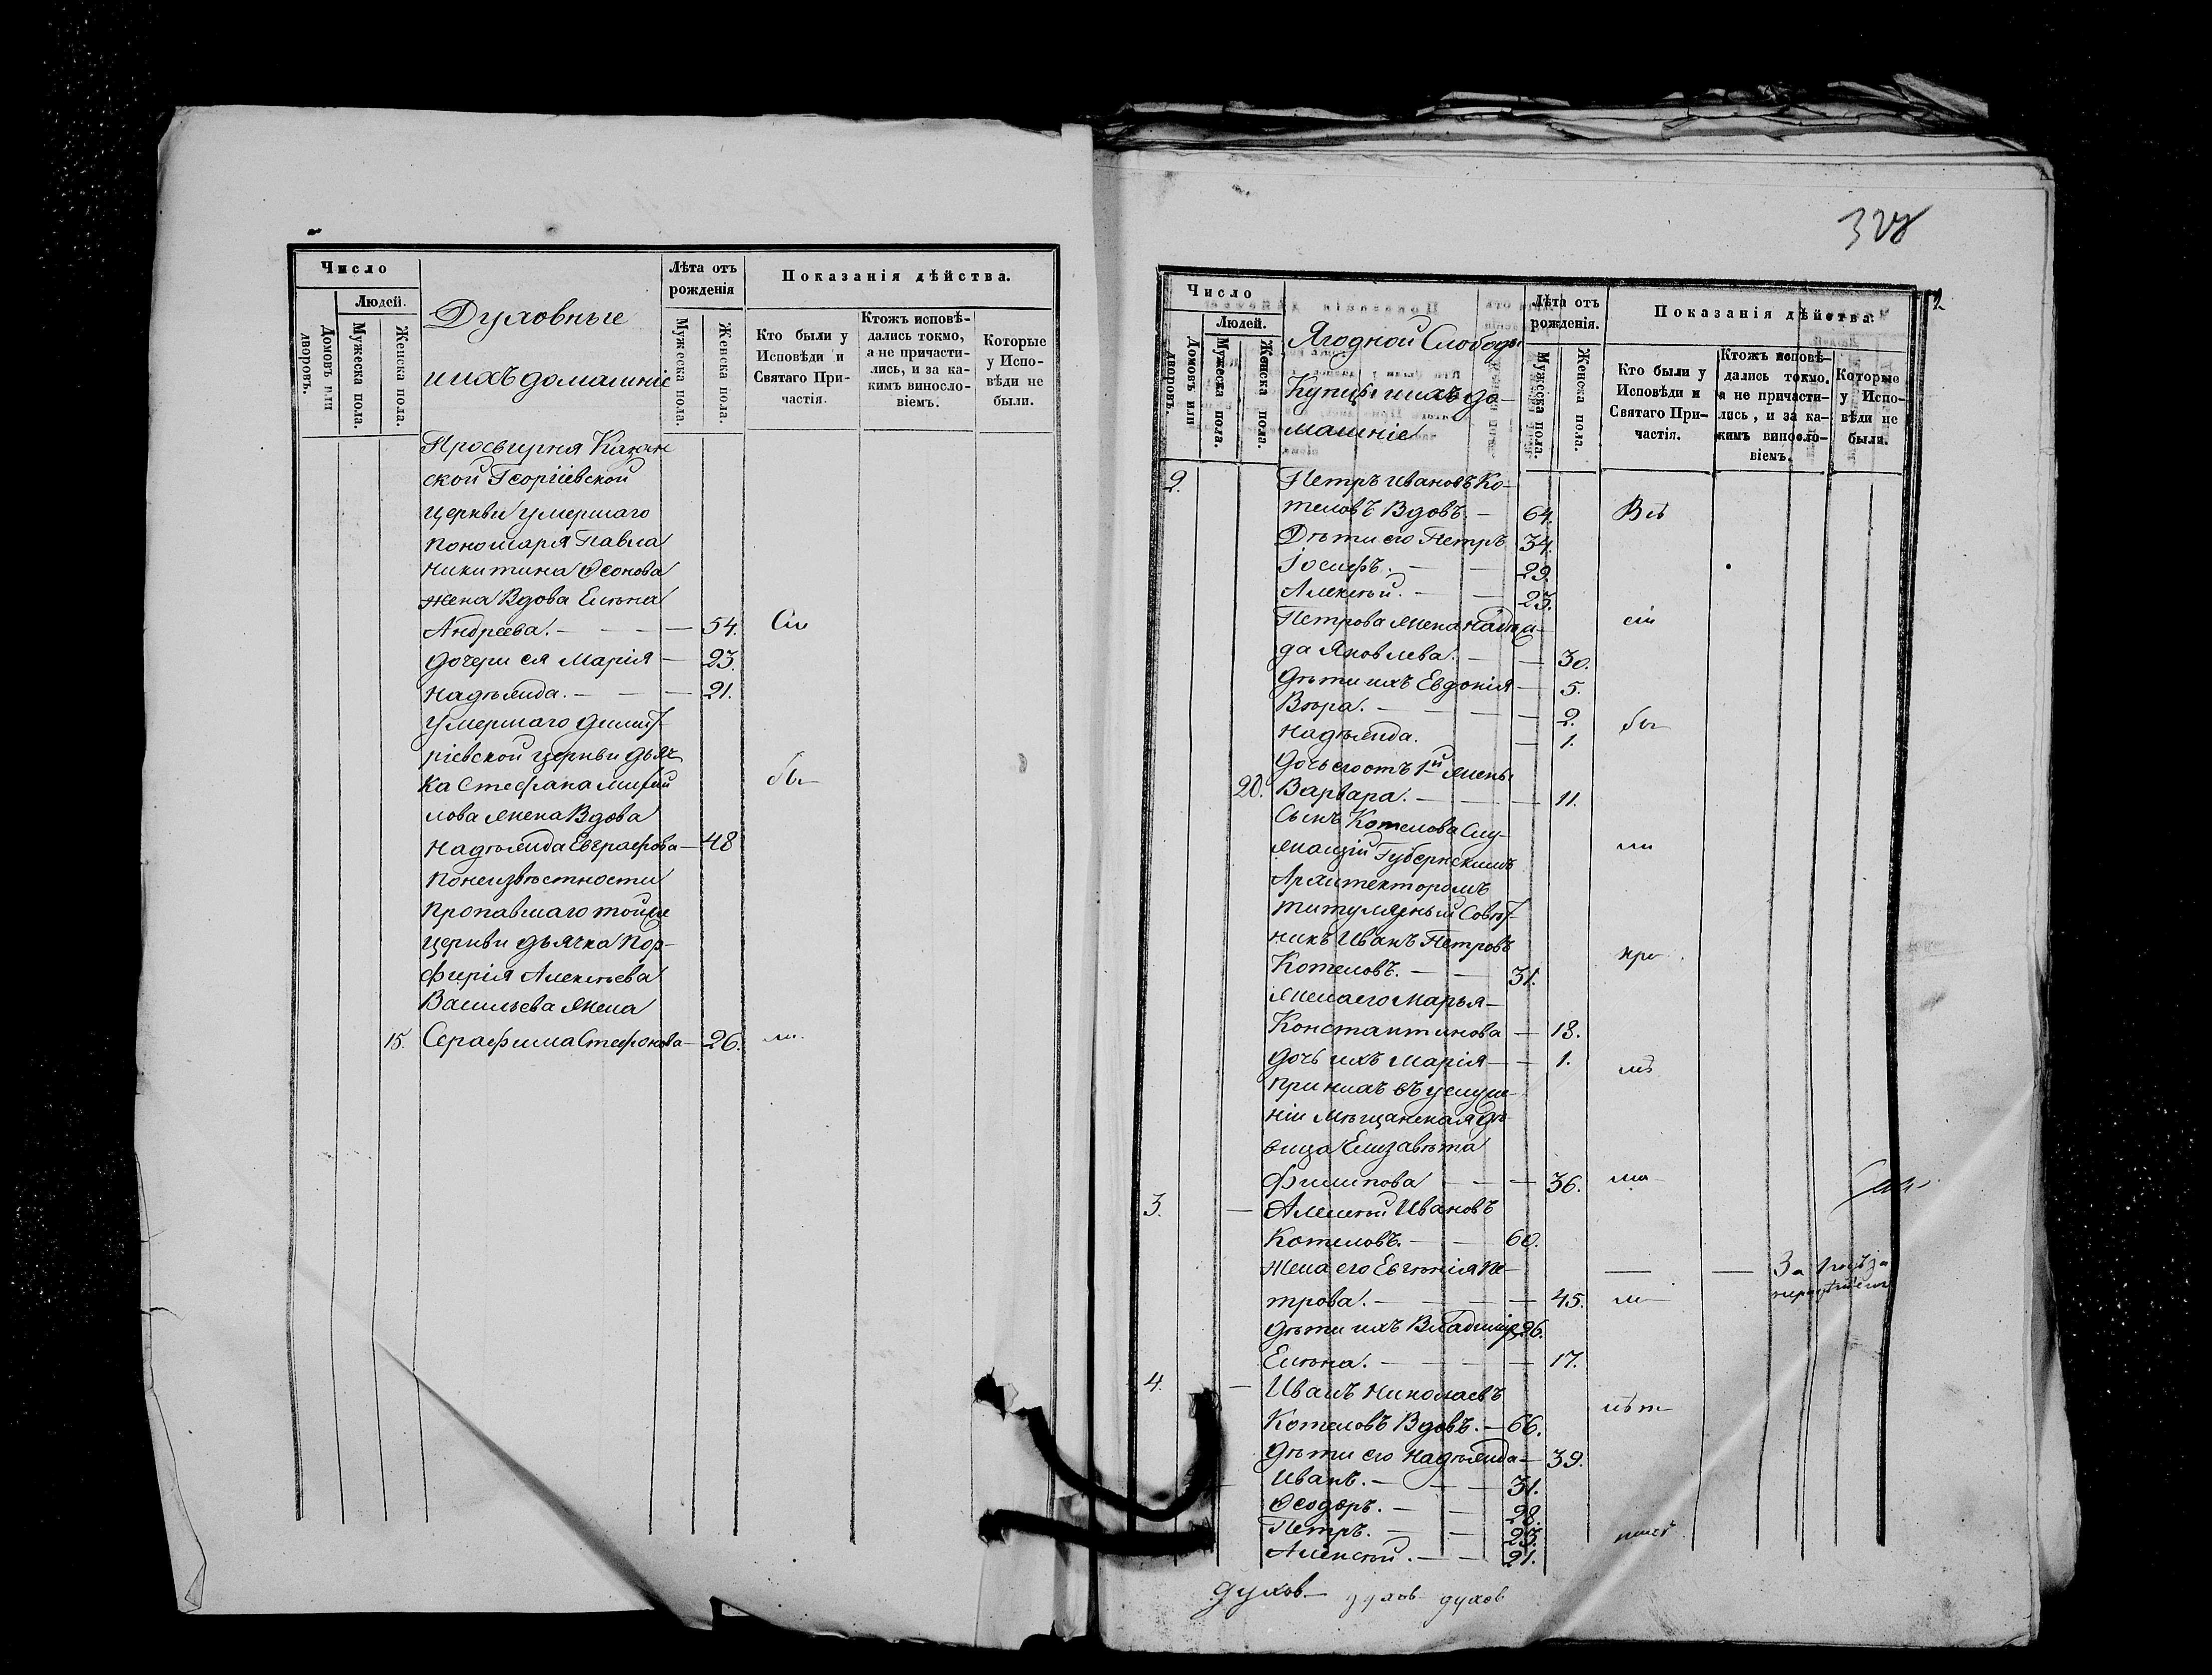 Число
Людей.
Домовъ или дворовъ.
Мужеска пола.
Женска пола.
Духовные
и ихъ домашніе
Лѣта отъ рожденія
Мужеска пола.
Женска пола.
Показанія дѣйства.
Кто были у Исповѣди и Святаго Причастія.
Ктожъ исповѣдались токмо, а не причастились, и за какимъ винословіемъ.
Которые у Исповѣди не были.
Просвирня Казан
ской Георгіевской
церкви умершаго
пономаря Павла
Никитина Ѳеонова
жена Вдова Елѣна
Андреева. — 54. Сіи
дочери ея Марія — 23.
Надѣжда. — 21.
умершаго Димит
ріевской церкви дьяч
ка Стефана Михай бы
лова жена Вдова
Надѣжда Евграфова — 48
по неизвѣстности
пропавшаго тойже
церкви дьячка Пор-
фирія Алексѣева
Васильева жена
15. Серафима Стефанова — 26. ли.
Число
Людей.
Домовъ или дворовъ.
Мужеска пола.
Женска пола.
Ягодной Слободы
Купцы и ихъ до-
машніе
Лѣта отъ рожденія.
Мужеска пола.
Женска пола.
Показанія дѣйства.
Кто были у Исповѣди и Святаго Причастія.
Ктожъ исповѣдались токмо. а не причастились, и за какимъ винословіемъ.
Которые у Исповѣди не были.
2. Петръ Ивановъ Ко-
теловъ Вдовъ. — 64. Всѣ
Дѣти его Петръ 34.
Іосифъ. — 29.
Алексѣй. — 23.
Петрова жена Надѣж- сіи
да Яковлева. — 30.
Дѣти ихъ Евдокія — 5.
Вѣра. — 2. бы
Надѣжда. — 1.
Дочь его отъ 1й жены
20. Варвара. — 11.
Сынъ Котелова Слу- ли
жащій Губернскимъ
Архитекторомъ
Титулярный Совѣт
никъ Иванъ Петровъ при
Котеловъ. — 31.
жена его Марья
Константинова — 18.
дочь ихъ Марія — 1.
при нихъ въ услуже-
ніи Мѣщанская дѣ-
вица Елизавѣта
Филипова — 36.
3. — Алексѣй Ивановъ
Котеловъ. — 60.
Жена его Евгенія Пе-
трова. — 45.
дѣти ихъ Владиміръ 26.
Елѣна. — 17.
4. — Иванъ Николаевъ
Котеловъ Вдовъ. — 66.
дѣти его Надѣжда — 39.
Иванъ. — 31.
Ѳеодоръ. — 28.
Петръ. — 23.
Алексѣй. — 21.
духов — духов духов